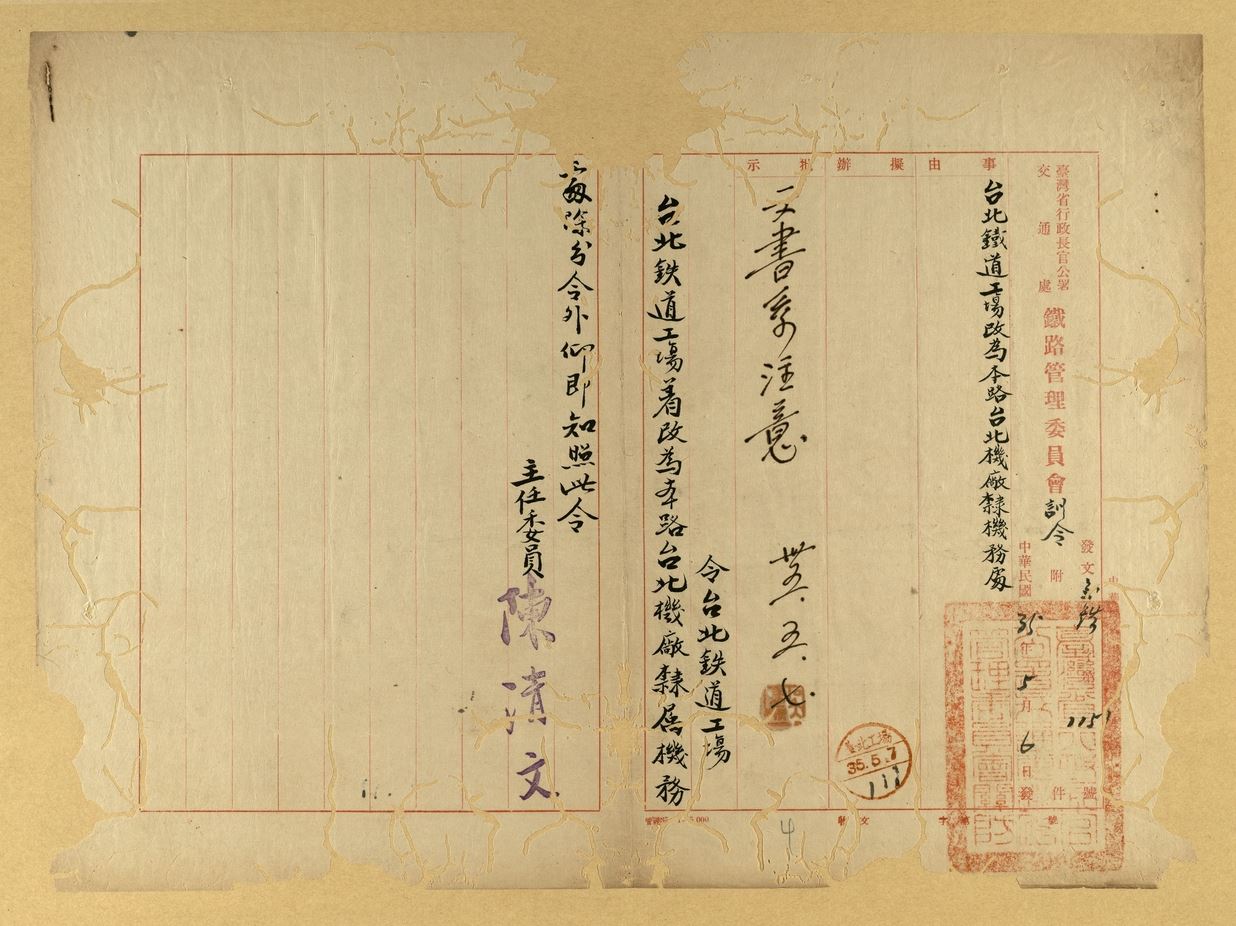 臺灣省行政長官公署
交通處
鐵路管理委員會
訓令
發文
1151
號
附
件
中華民國35年5月6日發
事由
台北鐵道工場改為本路台北機廠隸機務處
擬辦
批示
文書系注意
卅五.五.七
臺北工場
35.5.7
令台北鉄道工場
台北鉄道工場着改為本路台北機廠隸屬機務
處除分令外仰即知照此令
主任委員
陳清文
4